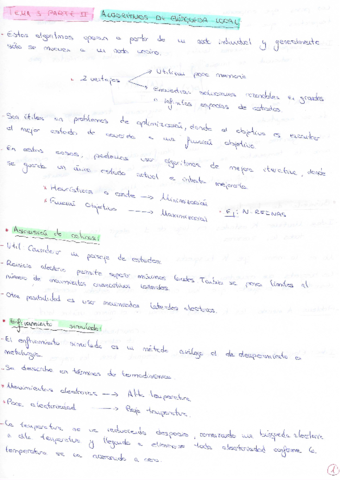 TEMA 3 PARTE II: ALGORITMOS DE BÚSQUEDA LOCAL
- Estos algoritmos operan a partir de un solo estado individual y generalmente
solo se mueven a un
2 ventajas → Utilizan poca memoria
→ Encuentran soluciones razonables en grandes
o infinitos espacios de estados.
- Son útiles en problemas de optimización, donde el objetivo es encontrar
el mejor estado de acuerdo a una función objetivo
- En estos casos, podemos usar algoritmos de mejora iterativa, donde
se guarda un único estado actual e intenta mejorarlo
Heurística o coste → Minimización
Función Objetivo → Maximización - Ej: N-REINAS
• Ascensión de colinas:
- Útil. Considerar un paisaje de estados.
- Reinicio aleatorio permite superar máximos locales
número de movimientos consecutivos laterales.
- Otra posibilidad es usar movimientos laterales aleatorios.
• Enfriamiento simulado:
- El enfriamiento simulado es un método análogo al de
metalurgia.
- Se describe en términos de termodinámica
• Movimientos aleatorios → Alta temperatura
• Poca aleatoriedad → Baja temperatura.
- La temperatura se va reduciendo despacio, comenzando una búsqueda aleatoria
a alta temperatura y llegando a eliminar toda aleatoriedad conforme la
temperatura se va acercando a cero.
1